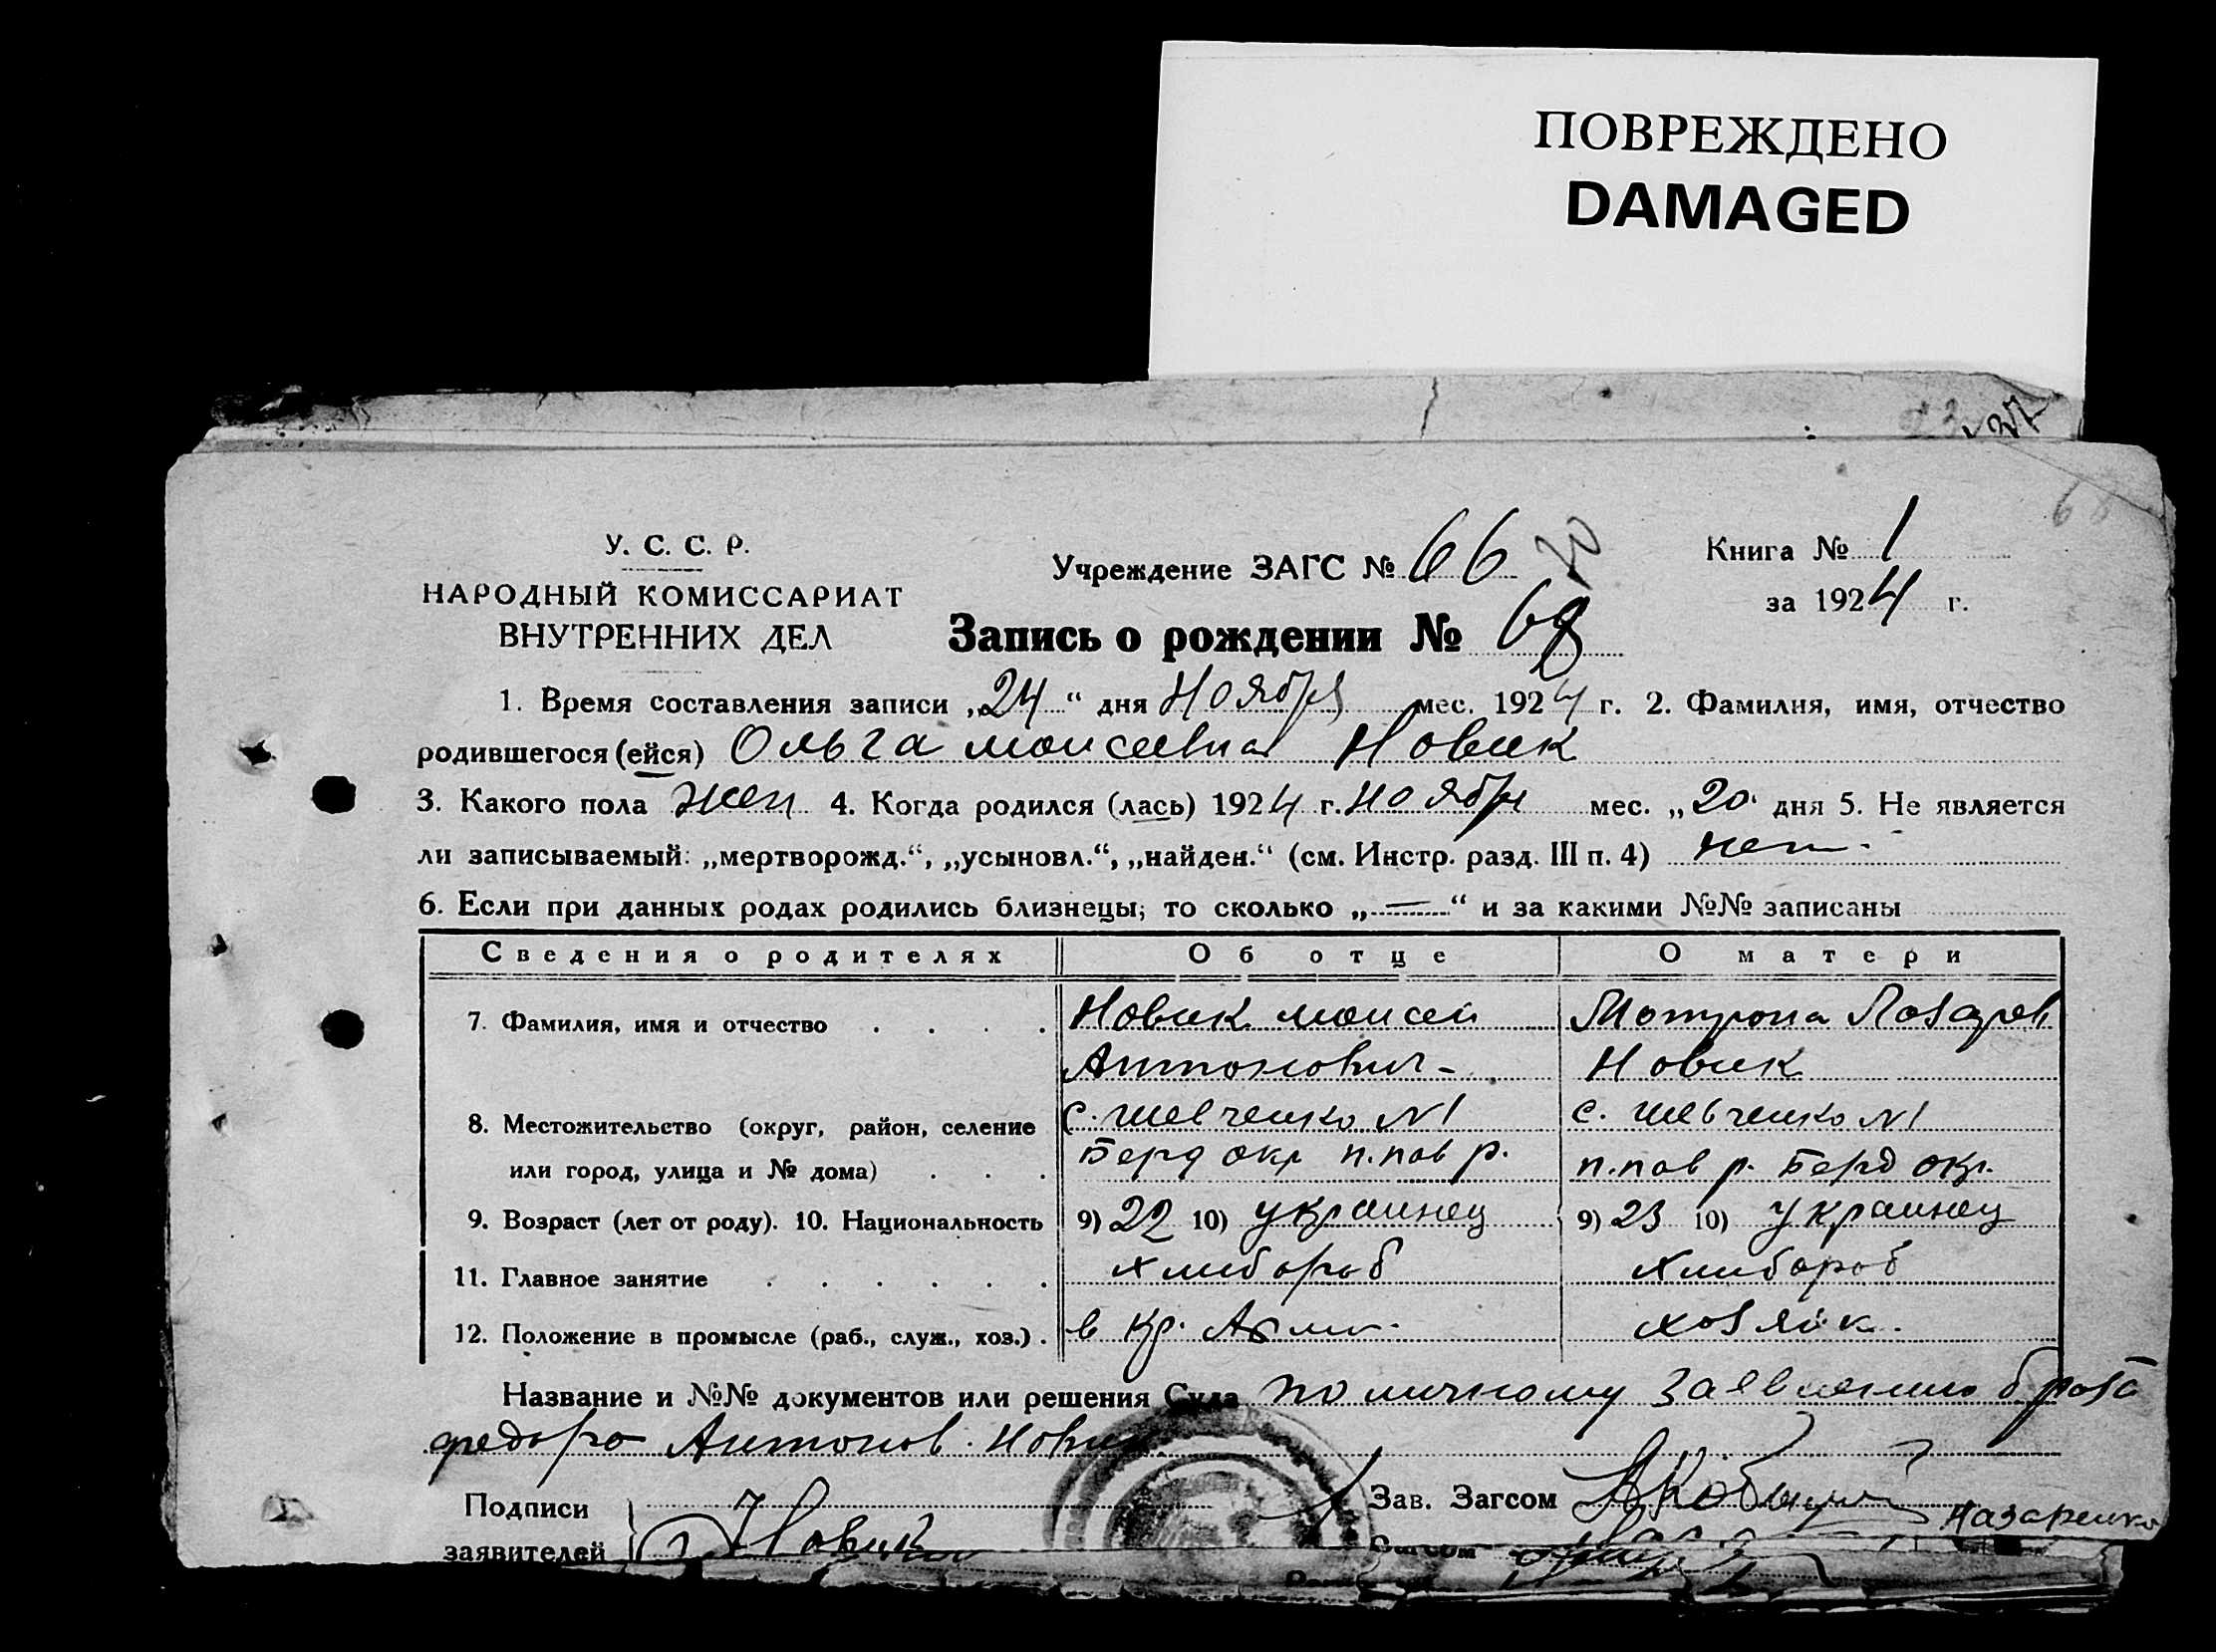 ПОВРЕЖДЕНО
DAMAGED
У. С. С. Р.
НАРОДНЫЙ КОМИССАРИАТ
ВНУТРЕННИХ ДЕЛ
Учреждение ЗАГС № 66
Книга № 1
за 1924 г.
Запись о рождении №
1. Время составления записи „24“ дня Ноября мес. 1924 г. 2. Фамилия, имя, отчество
родившегося (ейся) Ольга моисеевна Новик
3. Какого пола жен 4. Когда родился (лась) 1924 г. ноября мес. „20“ дня 5. Не является
ли записываемый: „мертворожд.“, „усыновл.“, „найден.“ (см. Инстр. разд. III п. 4) нет.
6. Если при данных родах родились близнецы; то сколько „—“ и за какими №№ записаны
Сведения о родителях Об отце О матери
7. Фамилия, имя и отчество Новик моисей Мотрона Лазарев
Антонович - Новик
8. Местожительство (округ, район, селение с. шевченко N1 с. шевченко N1
или город, улица и № дома) Берд окр п.пов р. п.пов р. Берд окр.
9. Возраст (лет от роду). 10. Национальность 9) 22 10) украинец 9) 23 10) украинец
11. Главное занятие хлибороб хлибороб
12. Положение в промысле (раб., служ., хоз.) в кр. Арми. хозяйк.
Название и №№ документов или решения Суда по личному заявлению брата
федора Антонов. Новик.
Подписи
заявителей Новик
Зав. Загсом
Назаренко